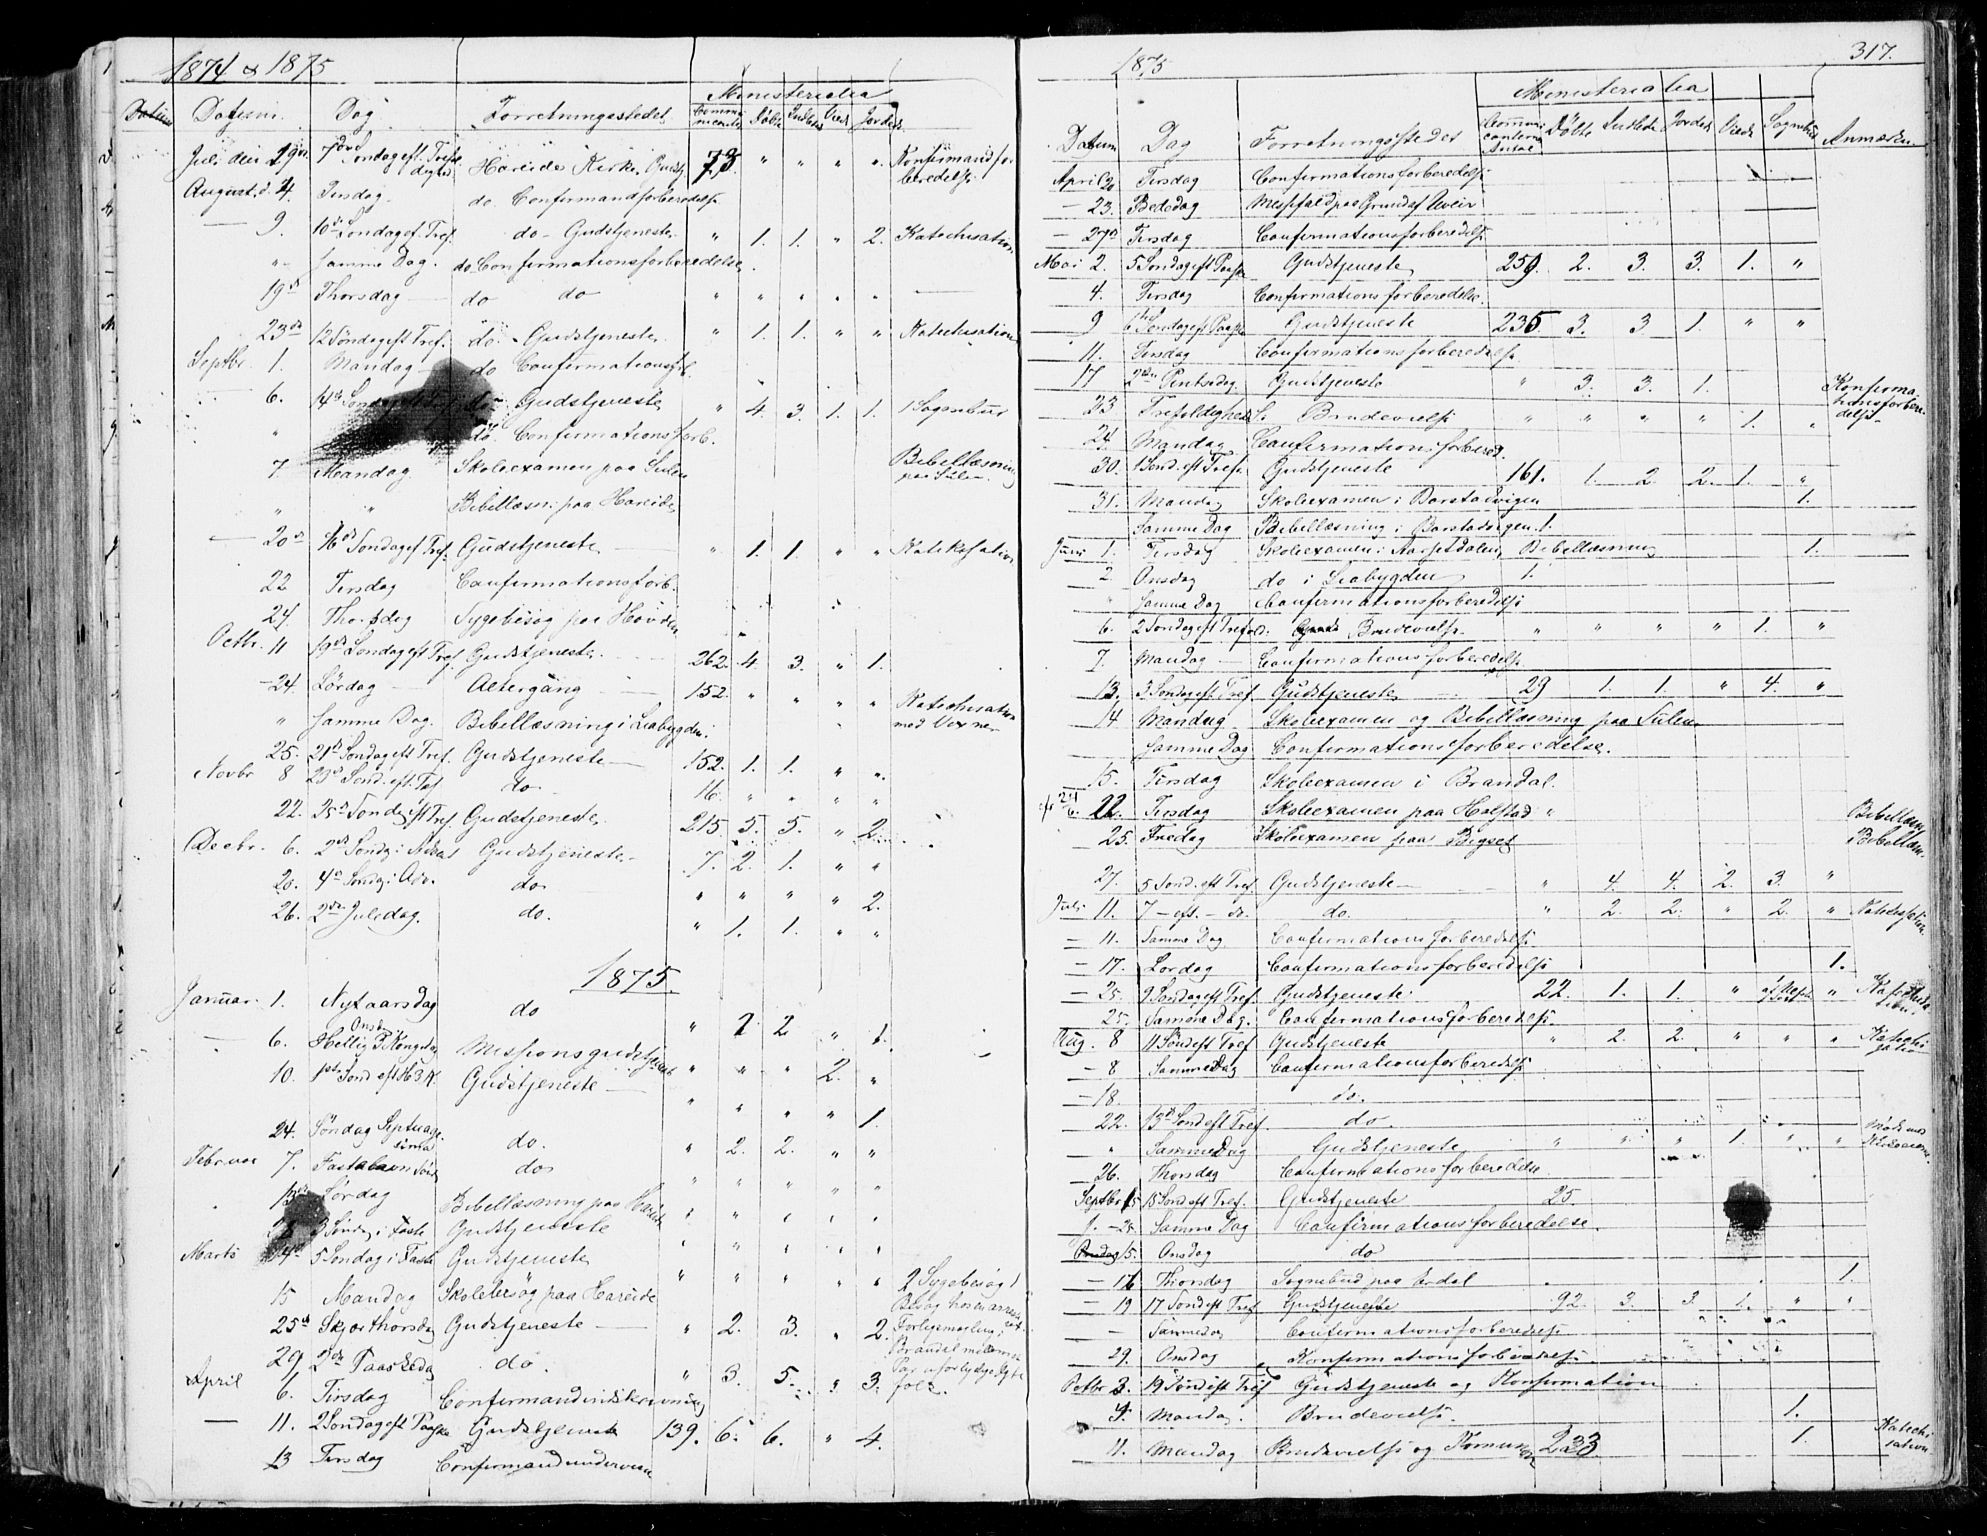 1874 & 1875
Ministerialia
Datum Datum Dag Forretningsstedet Communicanter Døbte Indledte Viede Jordede
Juli den 19de 7de Søndag eft. Trefoldighed Hareide Kirke, Gudstj 73 " " " " Konfirmandforberedelse
August d. 4. Tirsdag do Confirmandforberedelse
— 9. 10de Søndag ef. Tref. do - Gudstjeneste " 1. 1. " 2. Katechisation
" Samme Dag. do Confirmationsforberedelse
19de Thorsdag — do do " " " " " —
23de 12 Søndag eft Tref. do. Gudstjeneste " 1. 1. " " Katechisation
Septbr. 1. Mandag — do Confirmationsf.
— 6. 14de Søndag Gudstjeneste " 4. 3. 1. 1. 1 Sognebud
" do. Confirmationsforb.
7 Mandag Skoleexamen paa Sulen Bibellæsning paa Sulen.
" " Bibellæsn. paa Hareide
— 20de 16de Søndag ef. Tref. Gudstjeneste — " 1. 1. " " Katekisation
22 Tirsdag Confirmationsforb.
24. Thorsdag Sygebesøg paa Hovden
Octbr. 11 19de Søndag eft Tref. Gudstjeneste. 262. 4. 3. " 1.
— 24. Lørdag — Altergang — 152. " " " " Katechisation med Voxne
" Samme Dag. Bibellæsning i Liabygden.
25. 21de Søndag eft Tref. Gudstjeneste — 152. 1. 1. " "
Novbr 8 23de Sønd. eft. Tref do — 16. " " " "
22. 25de Søndag eft Tref. Gudstjeneste 215. 5. 5. " 2.
Decbr. 6. 2de Søndg i Advent Gudstjeneste — 7. 2. 1. " "
20. 4de Søndg i Adv. do — " " " " 2.
26. 2den Juledag. do. " 1. 1. " "
1875.
Januar. 1. Nytaarsdag do " 2 2 " 1.
— 6. Onsd. Hellig 3 Kongedag Missionsgudstjeneste " " " 2. "
10. 1ste Sønd eft H 3 K. Gudstjeneste — " " " " 1.
24. Søndag Septuagesima do. " 2. 2. " "
Februar 7. Fastelavn Sønd do " " " " "
13de Lørdag Bibellæsning paa Hareide " " " " "
28 3 Søndg. i Faste Gudstjeneste " " " " "
Marts 14de 5 Søndag i Faste Gudstjeneste " " " " " 2 Sygebesøg 1
15 Mandag Skolebesøg paa Hareide Besøg hos en
25de Skjærthorsdag Gudstjeneste — " 2. 3. " 2. Forligsmægling i
29 2den Paaskedag do. " 3. 5. " 3. Brandal mellem Par uforligelige Ægtefolk.
April 6. Tirsdag Confirmandindskrivning
— 11. 2 Søndag eft Paaske Gudstjeneste 139. 6. 6. " 4.
13 Tirsdag Confirmandunderviisn
1875 317.
Ministerialia
Datum Dag Forretningsstedet Communicanternes Antal Døbte Indledte Jordede Viede Sognebud Anmærkn
April 20 Tirsdag Confirmationsforberedelse
— 23. Bededag Messefald paa Grund af Uveir
— 27de Tirsdag Confirmationsforberedelse
Mai 2. 5 Søndag eft Paaske Gudstjeneste 259. 2. 3. 3. 1. "
4. Tirsdag Confirmationsforberedelse.
9 6te Søndag eft Paaske Gudstjeneste 235 3. 3 1. " "
11. Tirsdag Confirmationsforberedelse
17 2den Pintsedag Gudstjeneste " 3. 3. 1. Konfirmationsforberedelse
23 Trefoldigheds S. Brudevielse " " " " 1. "
24. Mandag Confirmationsforbered.
30. 1 Sønd. eft Tref. Gudstjeneste 161. 1. 2 2. 1. "
31. Mandag Skoleexamen i Barstadvigen 1.
Samme Dag Bibellæsning i Barstadvigen. 1.
Juni 1. Tirsdag Skoleexamen i Aarsetdalen, Bibellæsning 1.
2 Onsdag do i Liabygden 1.
" Samme Dag Confirmationsforberedelse
6. 2 Søndag eft Trefold. Brudevielse. " " " " 1. "
7. Mandag — Confirmationsforberedelse
13. 3 Søndag eft Tref. Gudstjeneste 29 1. 1. " 4. "
14 Mandag Skoleexamen og Bibellæsning paa Sulen
Samme Dag Confirmationsforberedelse.
15. Tirsdag Skoleexamen i Brandal.
22. Tirsdag Skoleexamen paa Holstad " Bibellæsn
25. Fredag Skoleexamen paa Bigset Bibellæsn.
27. 5 Sønd. eft Tref Gudstjeneste — " 4. 4. 2. 3. "
Juli 11. 7 — eft. — do. do. " 2. 2. " 2. " Katechisation
— 11. Samme Dag Confirmationsforberedelse
— 17. Lørdag Confirmationsforberedelse 1.
— 25. 9 Søndag eft Tref. Gudstjeneste 22. 1. 1. " "
25. Samme Dag. Confirmationsforberedelse.
Aug. 8 11 Sønd eft Tref Gudstjeneste " 2. 2. " " " Katechisation
— 8 Samme Dag Confirmationsforberedelse
— 18. do.
— 22. 13de Sønd eft Tref do.
" Samme Dag Gudstjeneste " " " 1. " " Møde med
26. Thorsdag Confirmationsforberedelse
Septbr 5 15 Sønd eft Tref. Gudstjeneste 25
Samme Dag Confirmationsforberedelse.
Onsdag 15. Onsdag do
— 16 Thorsdag Sognebud paa Erdal 1.
— 19 17 Sønd eft Tref Gudstjeneste 92. 3. 3. 1. " "
— Samme Dag Confirmationsforberedelse
29. Onsdag Konfirmationsforberedelse
Octbr 3. 19 Sønd eft Tref Gudstjeneste og Konfirmation
4. Mandag. Brudevielse. 1.
11. Mandag Brudevielse og Kommun 233 1. Katechisation